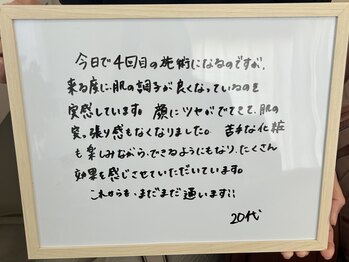 今日で4回目の施術になるのですが、
来る度に、肌の調子が良くなっているのを
実感しています。顔にツヤがでてきて、肌の
突っ張り感もなくなりました。苦手な化粧
も楽しみながら、できるようにもなり、たくさん
効果を感じさせていただいています。
これからも、まだまだ通います!!
20代